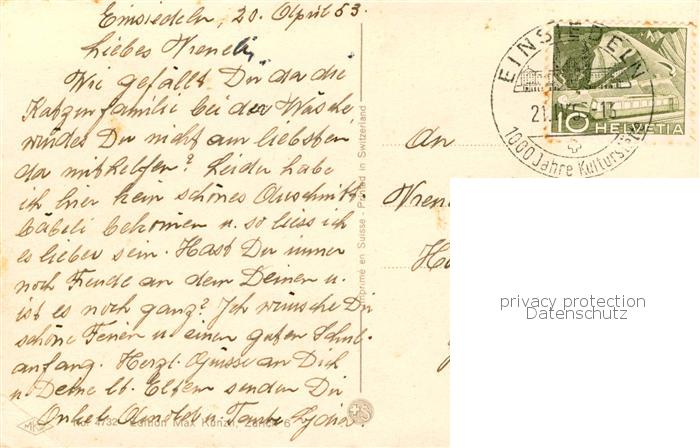 Einsiedeln, 20. April 53.
Liebes Vreneli,
Wie gefällt Dir da die
Katzenfamilie bei der Wäsche
würdest Du nicht am liebsten
da mithelfen? Leider habe
ich hier kein schönes Ausschnitt-
bäbeli bekommen u. so liess ich
es lieber sein. Hast Du immer
noch Freude an dem Deinen u.
ist es noch ganz? Ich wünsche Dir
schöne Ferien u. einen guten Schul-
anfang. Herzl. Grüsse an Dich
u. Deine lb. Eltern senden Dir
Onkel Arnold u. Tante Lydia.
An
Vren
EINSIEDELN
21. IV.
1000 Jahre Kulturstätte
10 HELVETIA
Imprimé en Suisse - Printed in Switzerland
No. 4732 Edition Max Künzli, Zürich 6
privacy protection
Datenschutz